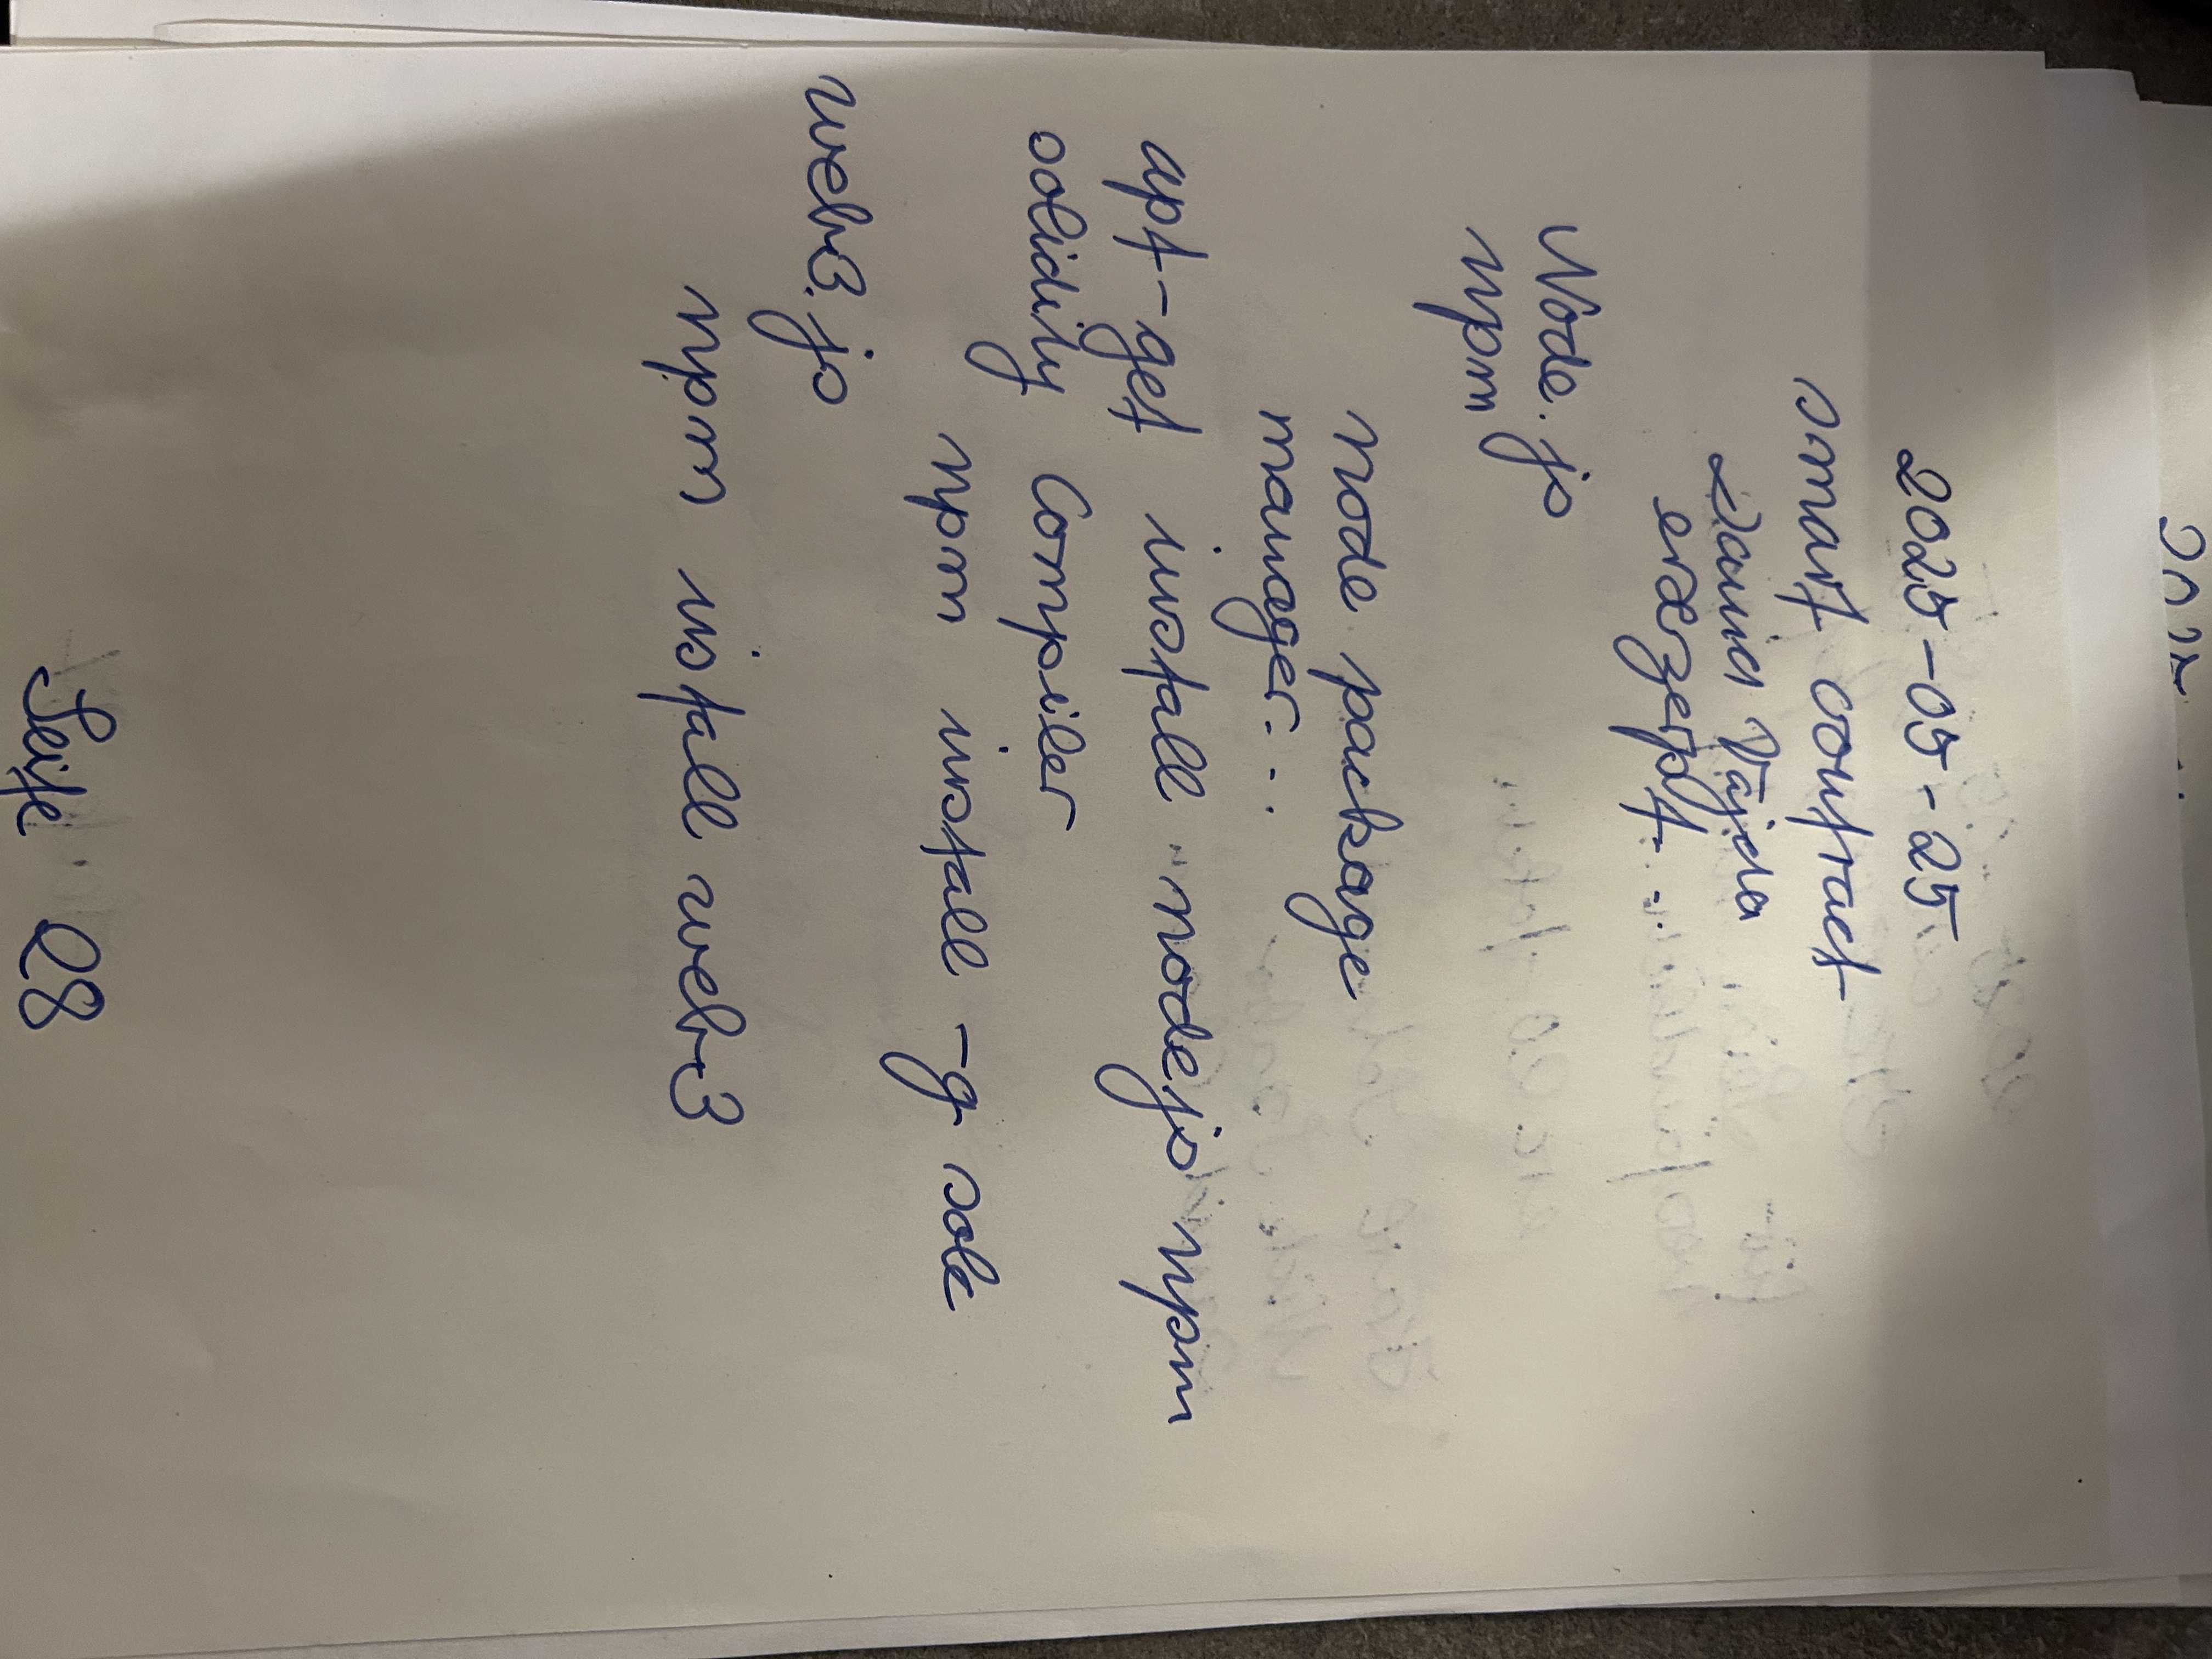 2025-05-25
smart contract
exzerpt...
Node.js
npm
node package
manager...
apt-get install nodejs npm
solidity Compiler
npm install -g solc
web3.js
npm install web3
Seite 28